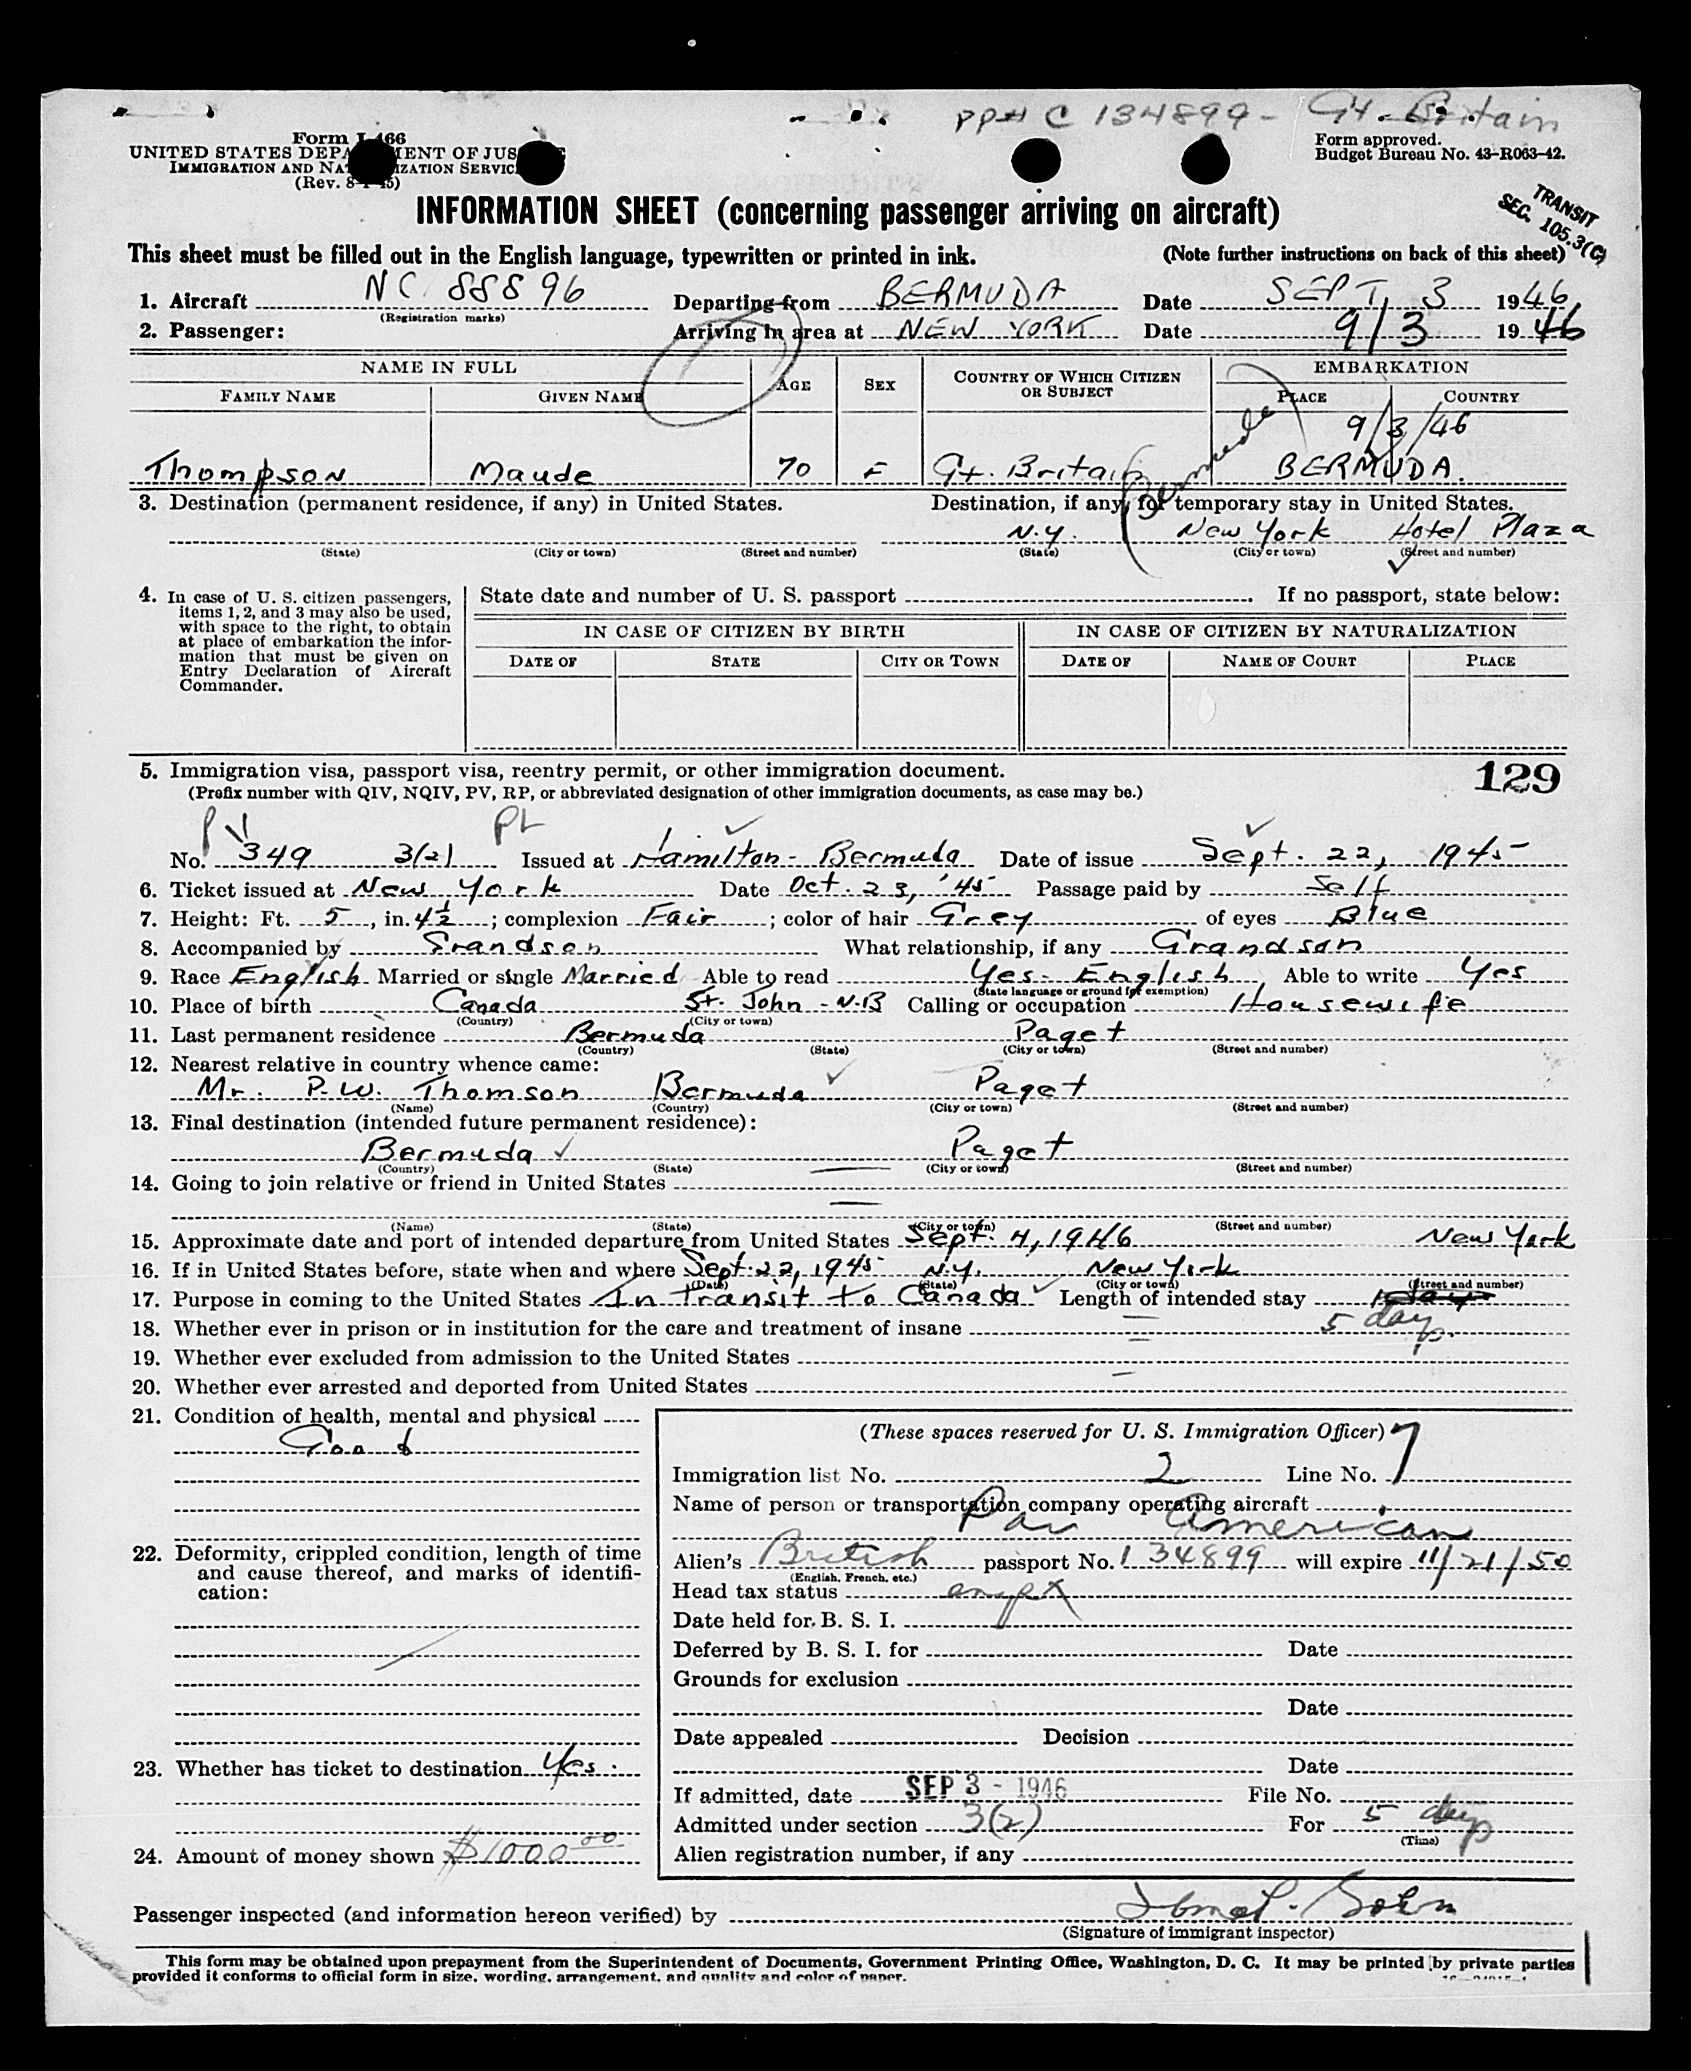 PP# C 134899 - Gt. Britain
Form I-466
UNITED STATES DEPARTMENT OF JUSTICE
IMMIGRATION AND NATURALIZATION SERVICE
(Rev. 8-1-45)
Form approved.
Budget Bureau No. 43-R063-42.
INFORMATION SHEET (concerning passenger arriving on aircraft)
TRANSIT
SEC. 105.3(C)
This sheet must be filled out in the English language, typewritten or printed in ink. (Note further instructions on back of this sheet)
1. Aircraft NC 88896 Departing from BERMUDA Date SEPT 3 1946
(Registration marks)
2. Passenger: Arriving in area at NEW YORK Date 9/3 1946
NAME IN FULL AGE SEX COUNTRY OF WHICH CITIZEN OR SUBJECT EMBARKATION
FAMILY NAME GIVEN NAME PLACE COUNTRY
9/3/46
Thompson Maude 70 F Gt. Britain BERMUDA.
Bermuda
3. Destination (permanent residence, if any) in United States. Destination, if any, for temporary stay in United States.
N.Y. New York Hotel Plaza
(State) (City or town) (Street and number) (State) (City or town) (Street and number)
4. In case of U. S. citizen passengers,
items 1, 2, and 3 may also be used,
with space to the right, to obtain
at place of embarkation the infor-
mation that must be given on
Entry Declaration of Aircraft
Commander.
State date and number of U. S. passport . If no passport, state below:
IN CASE OF CITIZEN BY BIRTH IN CASE OF CITIZEN BY NATURALIZATION
DATE OF STATE CITY OR TOWN DATE OF NAME OF COURT PLACE
5. Immigration visa, passport visa, reentry permit, or other immigration document. 129
(Prefix number with QIV, NQIV, PV, RP, or abbreviated designation of other immigration documents, as case may be.)
PV PL
No. 349 3(2) Issued at Hamilton - Bermuda Date of issue Sept. 22, 1945
6. Ticket issued at New York Date Oct. 23, '45 Passage paid by Self
7. Height: Ft. 5, in. 4½; complexion Fair; color of hair Grey of eyes Blue
8. Accompanied by Grandson What relationship, if any Grandson
9. Race English Married or single Married Able to read Yes - English Able to write Yes
(State language or ground for exemption)
10. Place of birth Canada St. John - N.B Calling or occupation Housewife
(Country) (City or town)
11. Last permanent residence Bermuda Paget
(Country) (State) (City or town) (Street and number)
12. Nearest relative in country whence came:
Mr. P.W. Thomson Bermuda Paget
(Name) (Country) (City or town) (Street and number)
13. Final destination (intended future permanent residence):
Bermuda Paget
(Country) (State) (City or town) (Street and number)
14. Going to join relative or friend in United States
(Name) (State) (City or town) (Street and number)
15. Approximate date and port of intended departure from United States Sept. 4, 1946 New York
16. If in United States before, state when and where Sept. 22, 1945 N.Y. New York
(Date) (State) (City or town) (Street and number)
17. Purpose in coming to the United States In transit to Canada Length of intended stay 1 day
5 days
18. Whether ever in prison or in institution for the care and treatment of insane
19. Whether ever excluded from admission to the United States
20. Whether ever arrested and deported from United States
21. Condition of health, mental and physical
Good
22. Deformity, crippled condition, length of time
and cause thereof, and marks of identifi-
cation:
23. Whether has ticket to destination Yes.
24. Amount of money shown $1000.00
(These spaces reserved for U. S. Immigration Officer)
Immigration list No. 2 Line No. 7
Name of person or transportation company operating aircraft
Pan American
Alien's British passport No. 134899 will expire 11/21/50
(English, French, etc.)
Head tax status
Date held for B. S. I.
Deferred by B. S. I. for Date
Grounds for exclusion
Date
Date appealed Decision
Date
If admitted, date SEP 3 - 1946 File No.
Admitted under section 3(2) For 5 days
(Time)
Alien registration number, if any
Passenger inspected (and information hereon verified) by
(Signature of immigrant inspector)
This form may be obtained upon prepayment from the Superintendent of Documents, Government Printing Office, Washington, D. C. It may be printed by private parties
provided it conforms to official form in size, wording, arrangement, and quality and color of paper.